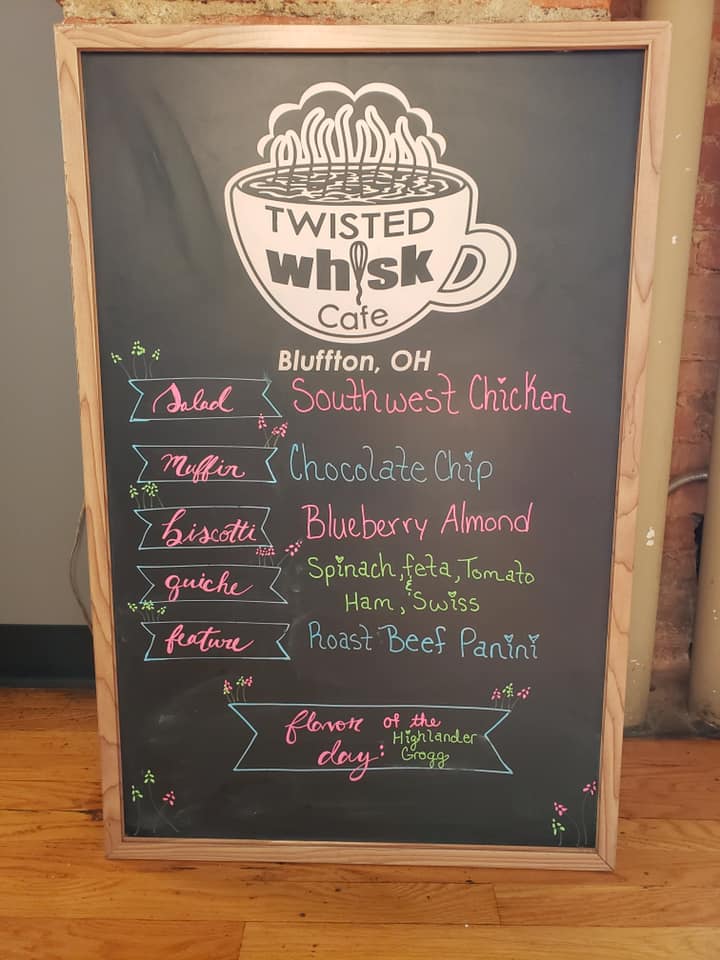 TWISTED
whisk
Cafe
Bluffton, OH
Salad Southwest Chicken
Muffin Chocolate Chip
biscotti Blueberry Almond
quiche Spinach, feta, Tomato
&
Ham, Swiss
feature Roast Beef Panini
flavor of the
day: Highlander
Grogg